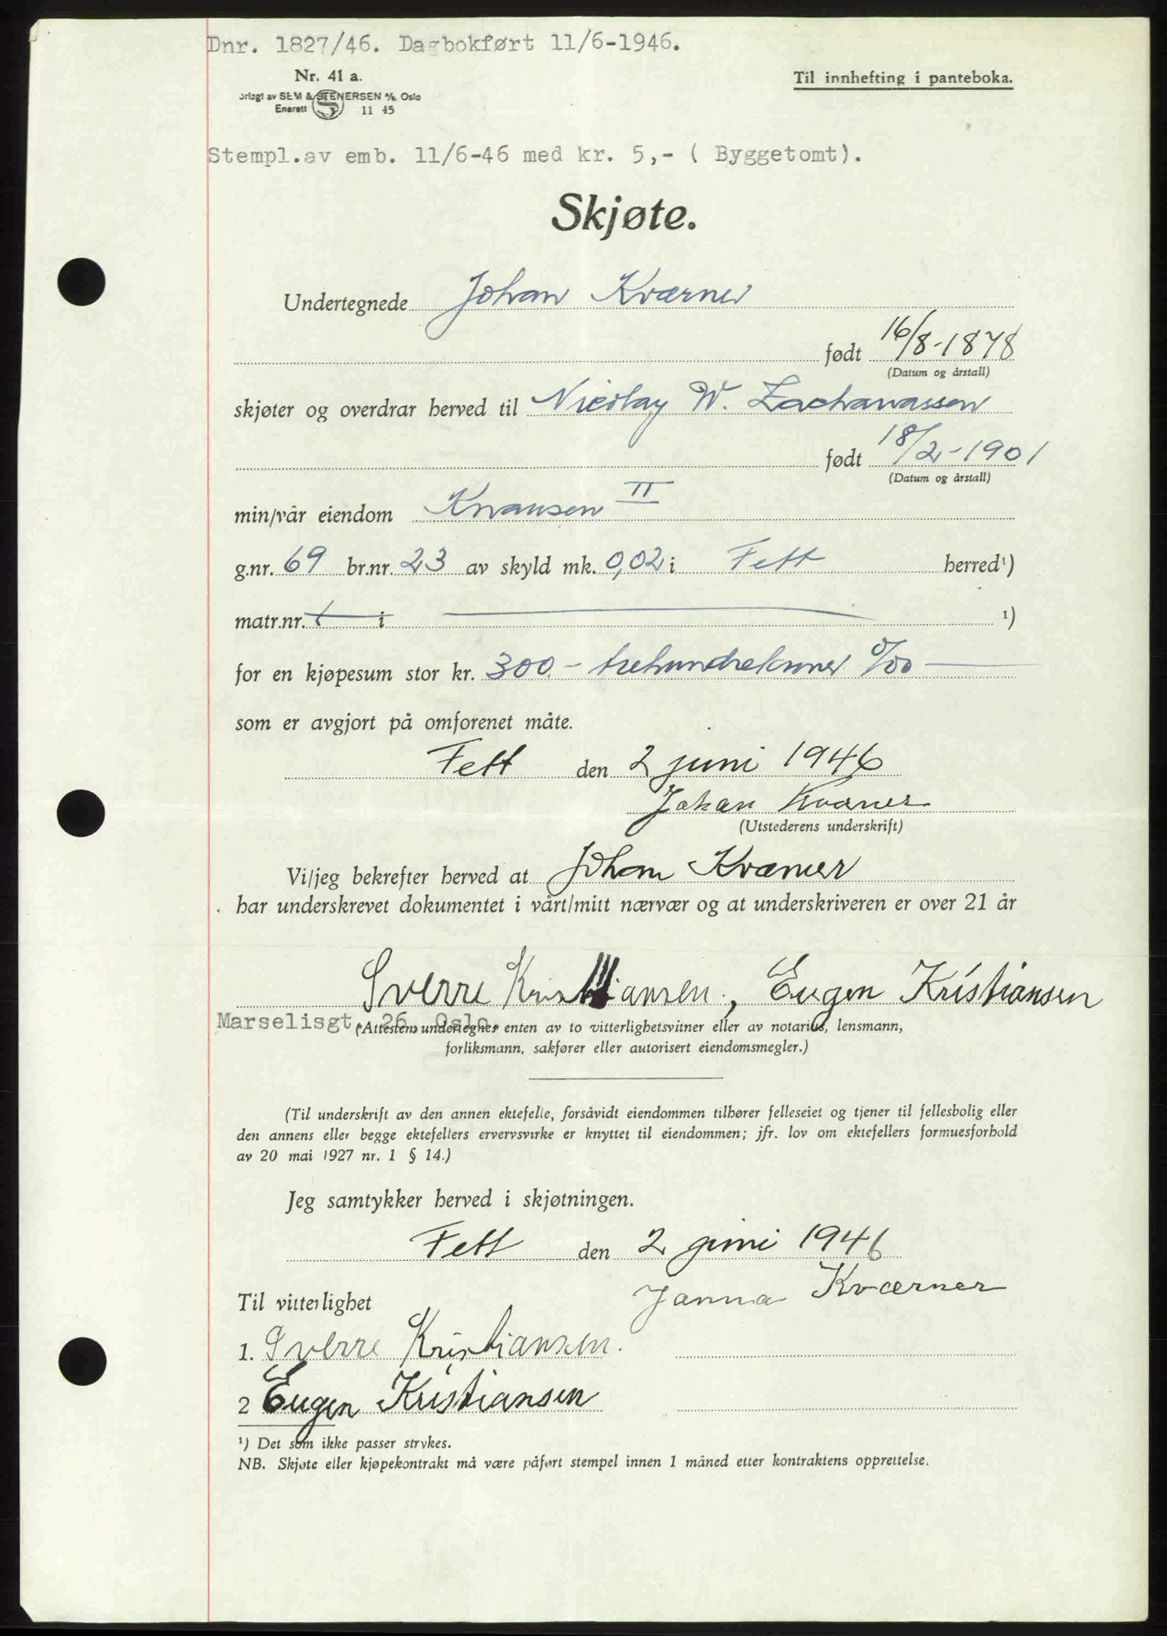 Dnr. 1827/46. Dagbokført 11/6-1946.
Nr. 41 a.
Til innhefting i panteboka.
orlagt av SEM & STENERSEN A/S, Oslo
Enerett S 11 45
Stempl.av emb. 11/6-46 med kr. 5,- ( Byggetomt).
Skjøte.
Undertegnede Johan Kværner
født 16/8-1878
(Datum og årstall)
skjøter og overdrar herved til Nicolay W. Zachariassen
født 18/2-1901
(Datum og årstall)
min/vår eiendom II
g.nr. 69 br.nr. 23 av skyld mk. 0,02 i Fett herred¹)
matr.nr. i ¹)
for en kjøpesum stor kr. 300.- trehundrekroner 0/00
som er avgjort på omforenet måte.
Fett den 2 juni 1946
Johan Kværner
(Utstederens underskrift)
Vi/jeg bekrefter herved at Johan Kværner
har underskrevet dokumentet i vårt/mitt nærvær og at underskriveren er over 21 år
Sverre Kristiansen., Eugen Kristiansen
Marselisgt. 26 Oslo.
(Attesten undertegnes enten av to vitterlighetsvitner eller av notarius, lensmann,
forliksmann, sakfører eller autorisert eiendomsmegler.)
(Til underskrift av den annen ektefelle, forsåvidt eiendommen tilhører felleseiet og tjener til fellesbolig eller
den annens eller begge ektefellers ervervsvirke er knyttet til eiendommen; jfr. lov om ektefellers formuesforhold
av 20 mai 1927 nr. 1 § 14.)
Jeg samtykker herved i skjøtningen.
Fett den 2 juni 1946
Janna Kværner
Til vitterlighet
1. Sverre Kristiansen.
2 Eugen Kristiansen
¹) Det som ikke passer strykes.
NB. Skjøte eller kjøpekontrakt må være påført stempel innen 1 måned etter kontraktens opprettelse.